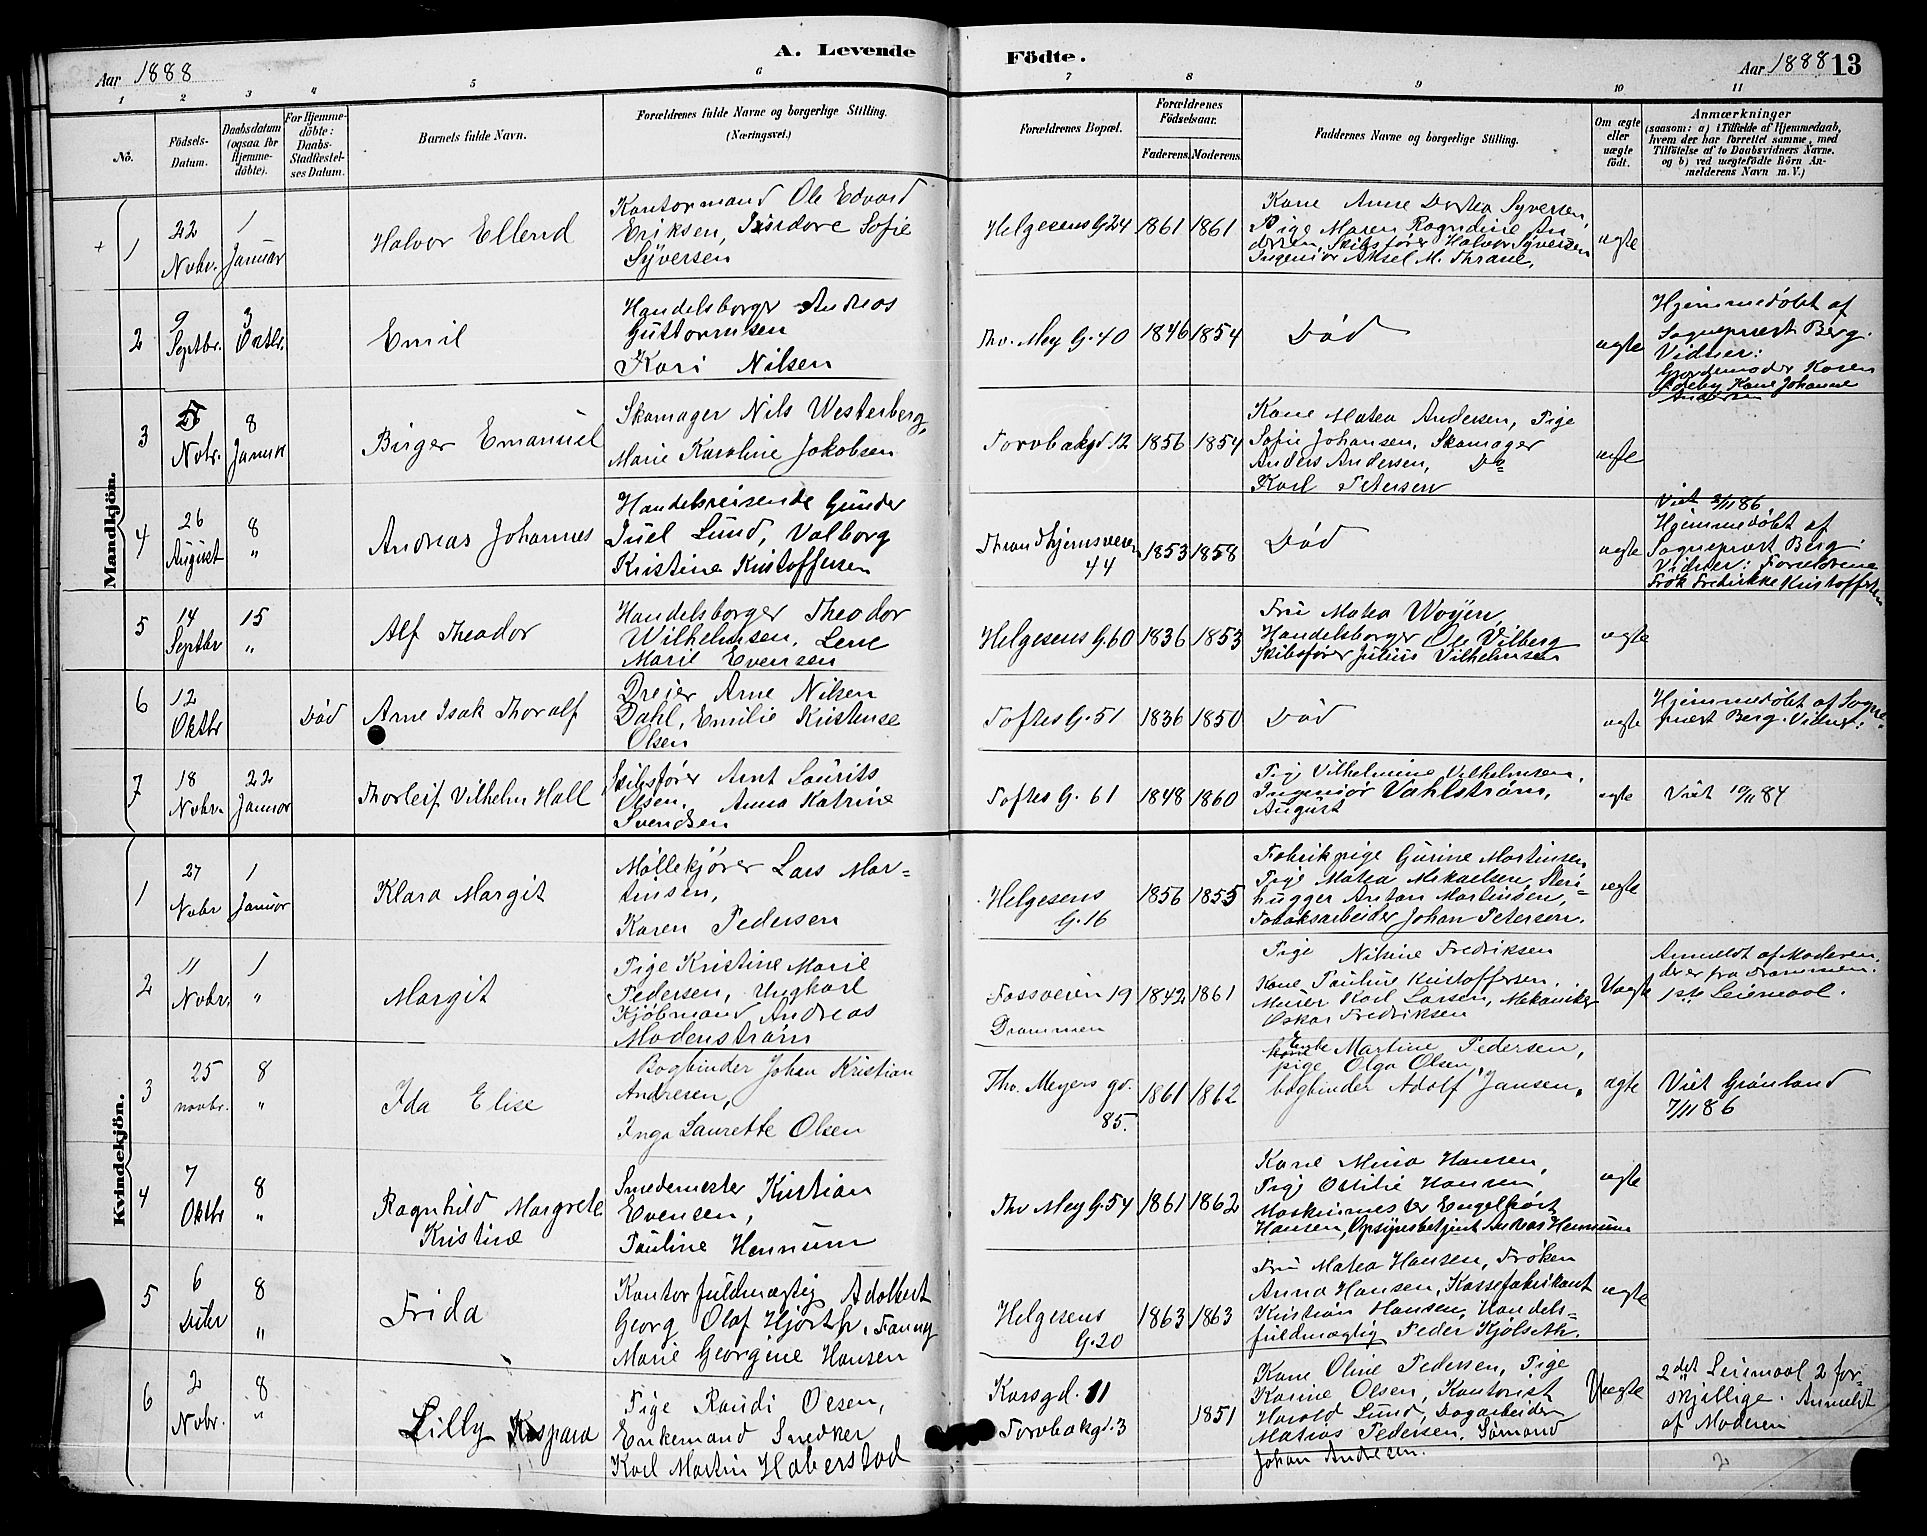 A. Levende Födte.
Aar 1888
Aar 1888 13
1 2 3 4 5 6 7 8 9 10 11
No.
Födsels-Datum.
Daabsdatum (ogsaa for Hjemmedöbte).
For Hjemmedöbte: Daabs-Stadfæstelses Datum.
Barnets fulde Navn.
Forældrenes fulde Navne og borgerlige Stilling. (Næringsvei.)
Forældrenes Bopæl.
Forældrenes Födselsaar.
Faderens. Moderens.
Faddernes Navne og borgerlige Stilling.
Om ægte eller uægte födt.
Anmærkninger
(saasom: a) i Tilfælde af Hjemmedaab, hvem der har forrettet samme, med Tilföielse af to Daabsvidners Navne. og b) ved uægtefödte Börn Anmelderens Navn m. V.)
Mandkjön.
+ 1
22 Novbr.
1 Januar
Halvor Ellend
Kontormand Ole Edvard
Eriksen, Isidore Sofie
Syversen
Helgesens G. 24
1861 1861
Kone Anne Dortea Syversen,
Pige Maren Ragndine An
dersen, Skibsfører Halvor Syversen
Ingeniør Aksel M. Thrane,
ægte
2
9 Septbr.
3 Octbr.
Emil
Handelsborger Andreas
Guttormsen
Kari Nilsen
Thv. Mey G. 40
1846 1854
Død
ægte
Hjemmedøbt af
Sogneprest Berg.
Vidner:
Gjordemoder Karen
Kone Johanne
Andersen
3
5 Novbr.
8 Januar
Birger Emanuel
Skomager Nils Westerberg,
Marie Karoline Jakobsen
Torvbakgd. 12
1856 1854
Kone Matea Andersen, Pige
Sofie Johansen, Skomager
Anders Andersen, Do
Karl Petersen
ægte
4
26 August
8 "
Andreas Johannes
Handelsreisende Gunder
Juel Lund, Valborg
Kristine Kristoffersen
Throndhjemsveien 44
1853 1858
Død
ægte
Viet 3/11 86
Hjemmedøbt af
Sogneprest Berg.
Vidner: Forældrene
Frøk Fredrikke Kristoffersen
5
14 Septbr
15 "
Alf Theodor
Handelsborger Theodor
Wilhelmsen, Lene
Marie Evensen
Helgesens G. 60
1836 1853
Fru Matea Woyen,
Handelsborger Ole Vilberg
Skibsfører Julius Vilhelmsen
ægte
6
12 Oktbr
Død
Arne Isak Thoralf
Dreier Arne Nilsen
Dahl, Emilie Kristense
Olsen
Toftes G. 51
1836 1850
Død
ægte
Hjemmedøbt af Sogne-
prest Berg. Vidner:
7
18 Novbr
22 Januar
Thorleif Vilhelm Hall
Skibsfører Arnt Laurits
Olsen, Anna Katrine
Svendsen
Toftes G. 61
1848 1860
Pige Vilhelmine Vilhelmsen,
Ingeniør Vahlstrøm,
August
ægte
Viet 10/11 84
Kvindekjön.
1
27 Novbr
1 Januar
Klara Margit
Møllekjører Lars Mar-
tinsen,
Karen Pedersen
Helgesens
G. 16
1856 1855
Fabrikpige Gurine Martinsen
Pige Matea Mikaelsen, Sten-
hugger Anton Martinsen,
Tobaksarbeider Johan Petersen.
ægte
2
11 Novbr.
1 "
Margit
Pige Kristine Marie
Pedersen, Ungkarl
Kjøbmand Andreas
Modenstrøm
Fossveien 19
Drammen
1842 1861
Pige Nilsine Fredriksen
Kone Pauline Kristoffersen.
Murer Karl Larsen, Mekaniker
Oskar Fredriksen
Uægte
Anmeldt af Moderen,
der er fra Drammen.
1ste Leiemaal.
3
25 novbr.
8 "
Ida Elise
Bogbinder Johan Kristian
Andresen,
Inga Laurette Olsen
Thv. Meyers gd.
85.
1861 1862
Enke Martine Pedersen,
pige Olga Olsen,
bogbinder Adolf Jansen,
ægte
Viet Grønland
7/11 86
4
7 Oktbr
8 "
Ragnhild Margrete
Kristine
Smedemester Kristian
Evensen,
Pauline Hennum
Thv Mey G. 54
1861 1862
Kone Mina Hansen,
Pige Ottilie Hansen
Maskinmester Engelhørt
Hansen, Opsynsbetjent Andreas Hennum
ægte
5
6 Dcbr
8 "
Frida
Kontorfuldmægtig Adolbert
Georg Olaf Hjorth, Fanny
Marie Georgine Hansen
Helgesens
G. 20
1863 1863
Fru Matea Hansen, Frøken
Anna Hansen, Kassefabrikant
Kristian Hansen, Handels-
fuldmægtig Peder Kjølseth.
ægte
6
2 Novbr.
8 "
Lilly Kaspara
Pige Randi Olsen,
Enkemand Snedker
Karl Martin Haberstad
Korsgd. 11
Torvbakgd. 3
1851
Kone Oline Pedersen, Pige
Karine Olsen, Kontorist
Harold Lund, Dagarbeider
Matias Pedersen, Sømand
Johan Andresen.
Uægte
2det Leiemaal 2 for-
skjellige. Anmeldt
af Moderen
2